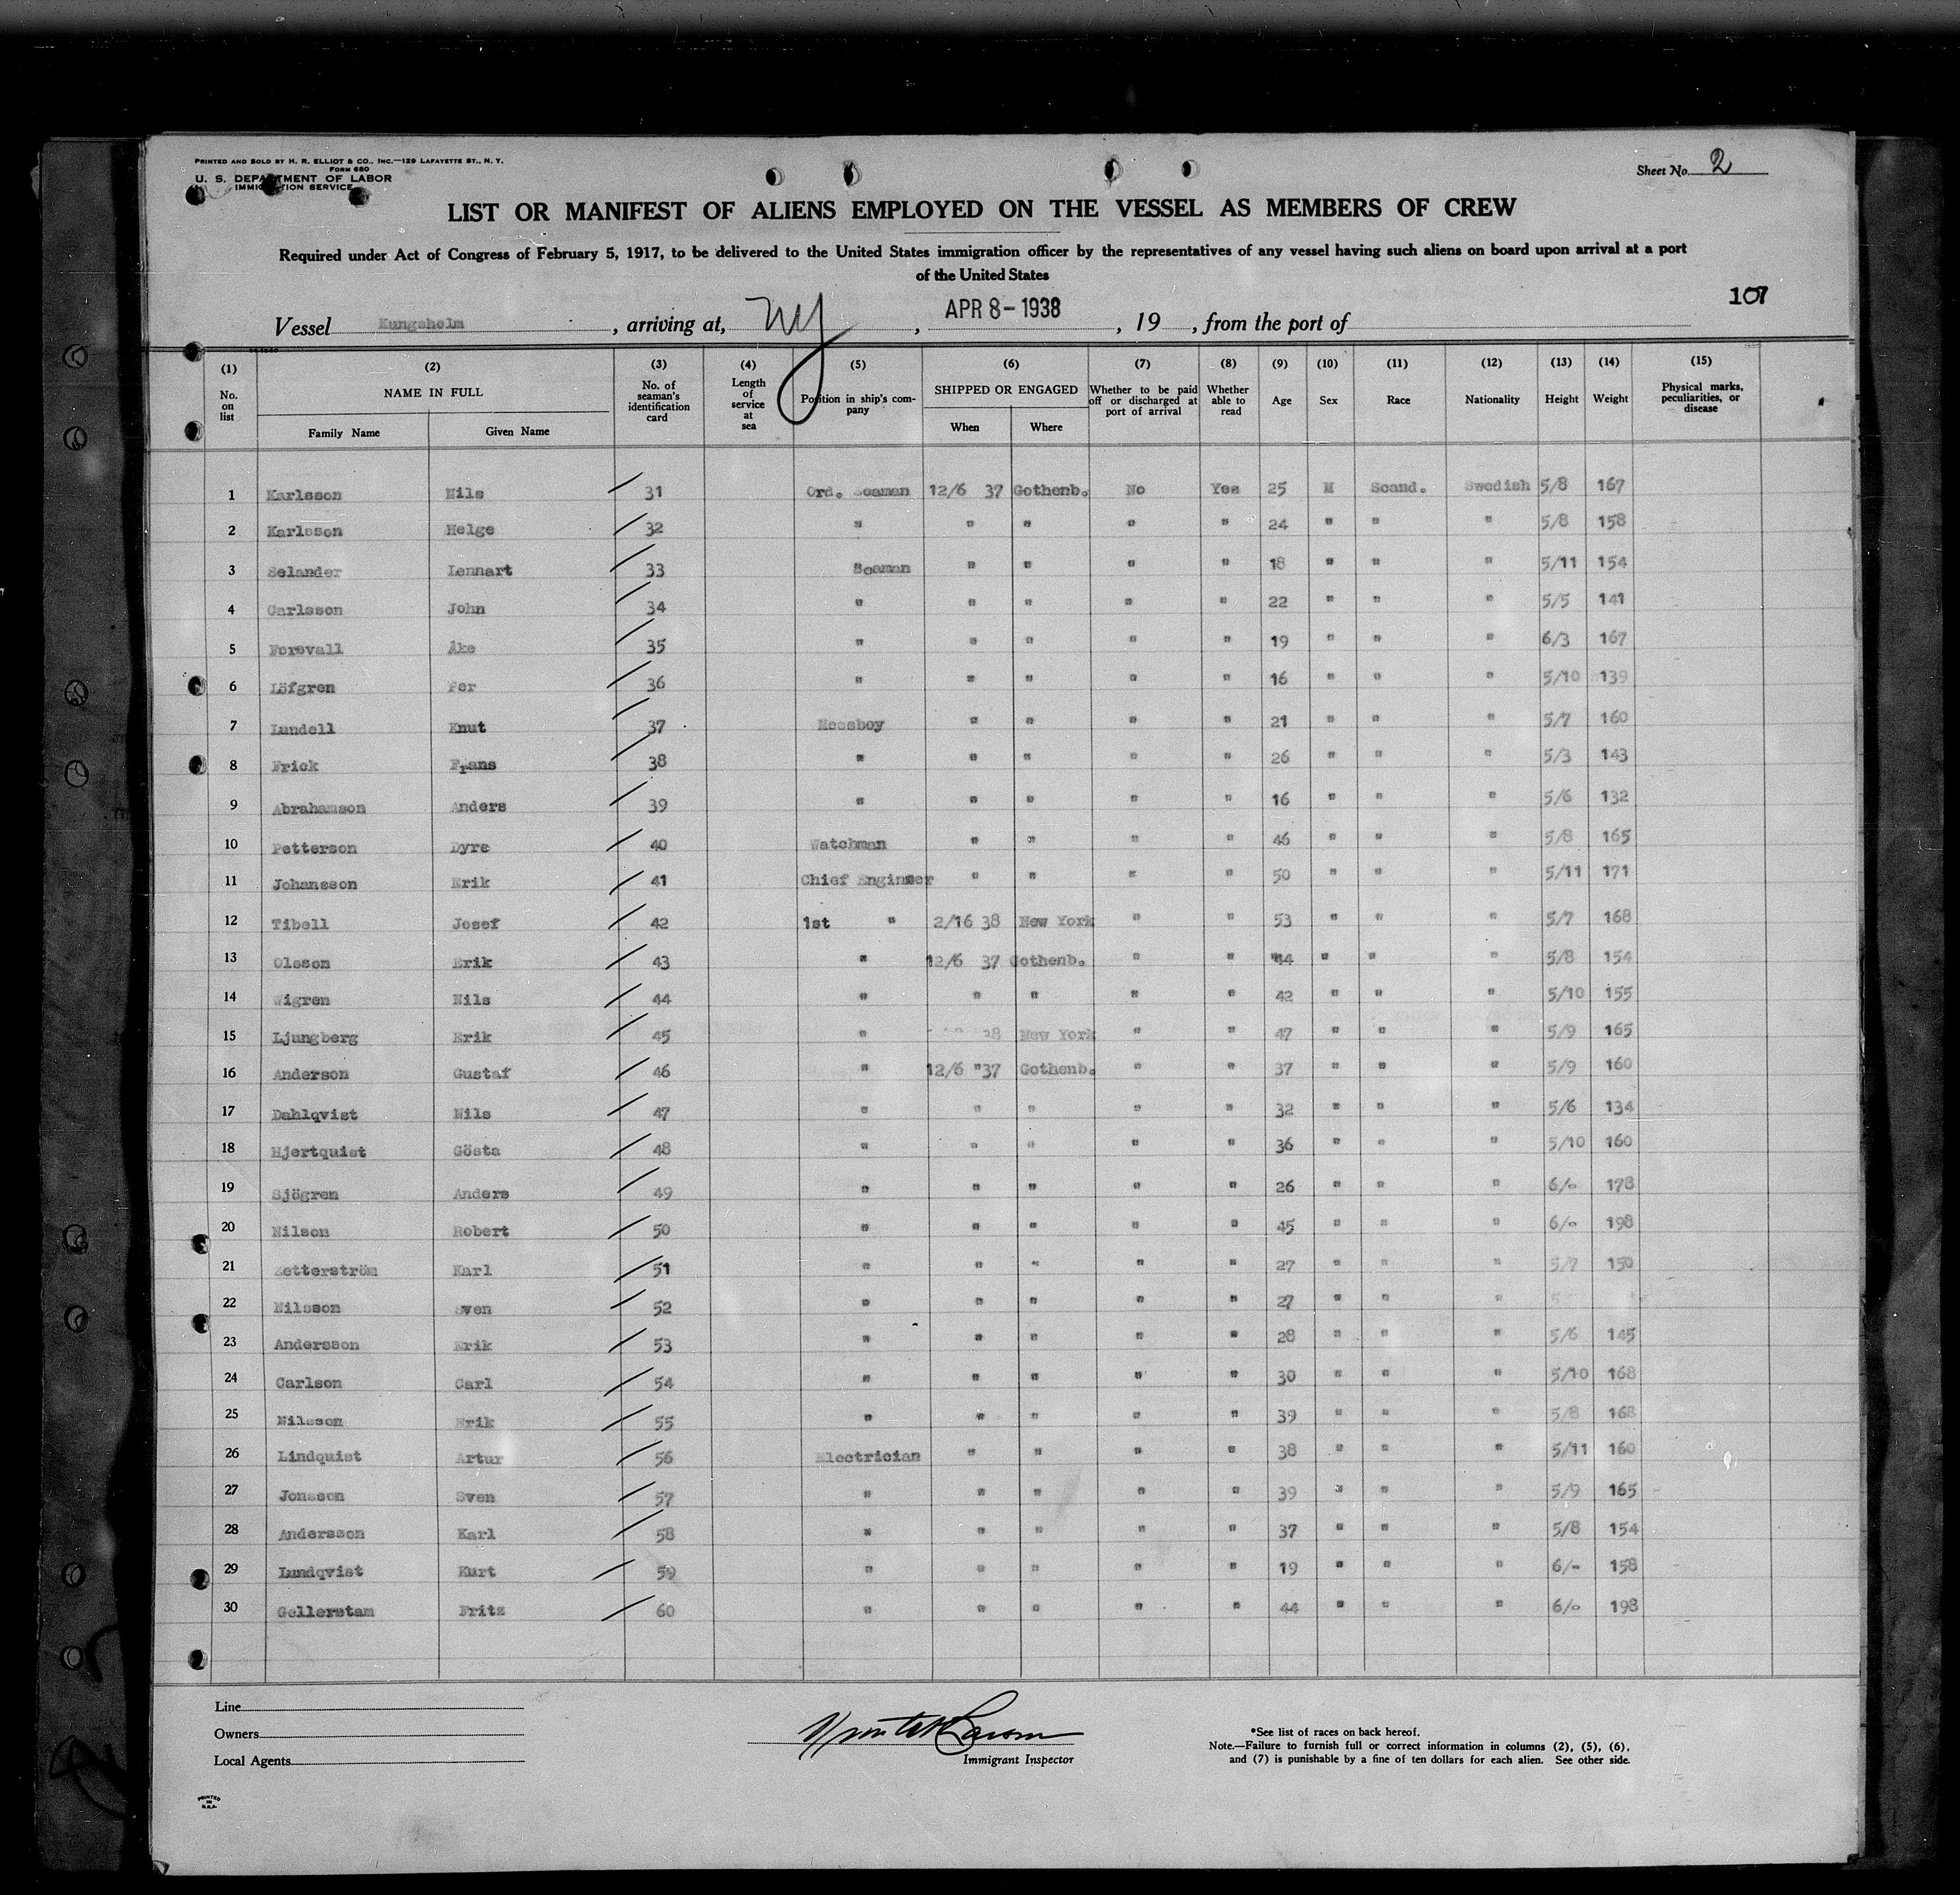 PRINTED AND SOLD BY H. R. ELLIOT & CO., INC.—129 LAFAYETTE ST., N. Y.
FORM 680
U. S. DEPARTMENT OF LABOR
IMMIGRATION SERVICE
Sheet No. 2
LIST OR MANIFEST OF ALIENS EMPLOYED ON THE VESSEL AS MEMBERS OF CREW
Required under Act of Congress of February 5, 1917, to be delivered to the United States immigration officer by the representatives of any vessel having such aliens on board upon arrival at a port
of the United States
107
Vessel Kungsholm, arriving at, NY, APR 8 - 1938, 19 , from the port of
(1) No. on list (2) NAME IN FULL Family Name Given Name (3) No. of seaman's identification card (4) Length of service at sea (5) Position in ship's company (6) SHIPPED OR ENGAGED When Where (7) Whether to be paid off or discharged at port of arrival (8) Whether able to read (9) Age (10) Sex (11) Race (12) Nationality (13) Height (14) Weight (15) Physical marks, peculiarities, or disease
1 Karlsson Nils 31 Ord. Seaman 12/6 37 Gothenb. No Yes 25 M Scand. Swedish 5/8 167
2 Karlsson Helge 32 " " " " " 24 " " " 5/8 158
3 Selander Lennart 33 Seaman " " " " 18 " " " 5/11 154
4 Carlsson John 34 " " " " " 22 " " " 5/5 141
5 Forsvall Åke 35 " " " " " 19 " " " 6/3 167
6 Löfgren Per 36 " " " " " 16 " " " 5/10 139
7 Lundell Knut 37 Messboy " " " " 21 " " " 5/7 160
8 Frick Frans 38 " " " " " 26 " " " 5/3 143
9 Abrahamson Anders 39 " " " " " 16 " " " 5/6 132
10 Petterson Dyre 40 Watchman " " " " 46 " " " 5/8 165
11 Johansson Erik 41 Chief Engineer " " " " 50 " " " 5/11 171
12 Tibell Josef 42 1st " 2/16 38 New York " " 53 " " " 5/7 168
13 Olsson Erik 43 " 12/6 37 Gothenb. " " "44 " " " 5/8 154
14 Wigren Nils 44 " " " " " 42 " " " 5/10 155
15 Ljungberg Erik 45 " 38 New York " " 47 " " " 5/9 165
16 Anderson Gustaf 46 " 12/6 "37 Gothenb. " " 37 " " " 5/9 160
17 Dahlqvist Nils 47 " " " " " 32 " " " 5/6 134
18 Hjertquist Gösta 48 " " " " " 36 " " " 5/10 160
19 Sjögren Anders 49 " " " " " 26 " " " 6/0 178
20 Nilson Robert 50 " " " " " 45 " " " 6/0 198
21 Zetterström Karl 51 " " " " " 27 " " " 5/7 150
22 Nilsson Sven 52 " " " " " 27 " " "
23 Andersson Erik 53 " " " " " 28 " " " 5/6 145
24 Carlson Carl 54 " " " " " 30 " " " 5/10 168
25 Nilsson Erik 55 " " " " " 39 " " " 5/8 168
26 Lindquist Artur 56 Electrician " " " " 38 " " " 5/11 160
27 Jonsson Sven 57 " " " " " 39 " " " 5/9 165
28 Andersson Karl 58 " " " " " 37 " " " 5/8 154
29 Lundqvist Kurt 59 " " " " " 19 " " " 6/- 158
30 Gellerstam Fritz 60 " " " " " 44 " " " 6/0 198
Line
Owners
Local Agents
Immigrant Inspector
*See list of races on back hereof.
Note.—Failure to furnish full or correct information in columns (2), (5), (6),
and (7) is punishable by a fine of ten dollars for each alien. See other side.
PRINTED
IN
U.S.A.